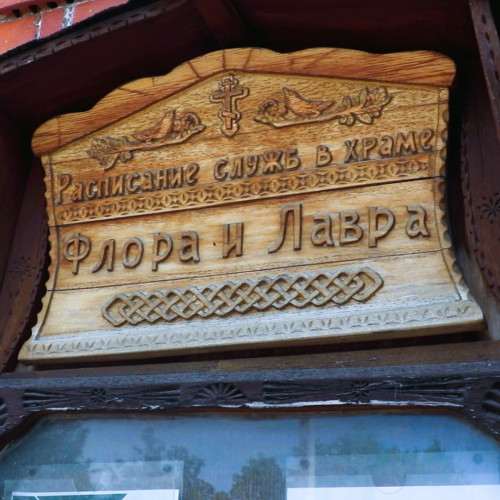 Расписание служб в храме
Флора и Лавра